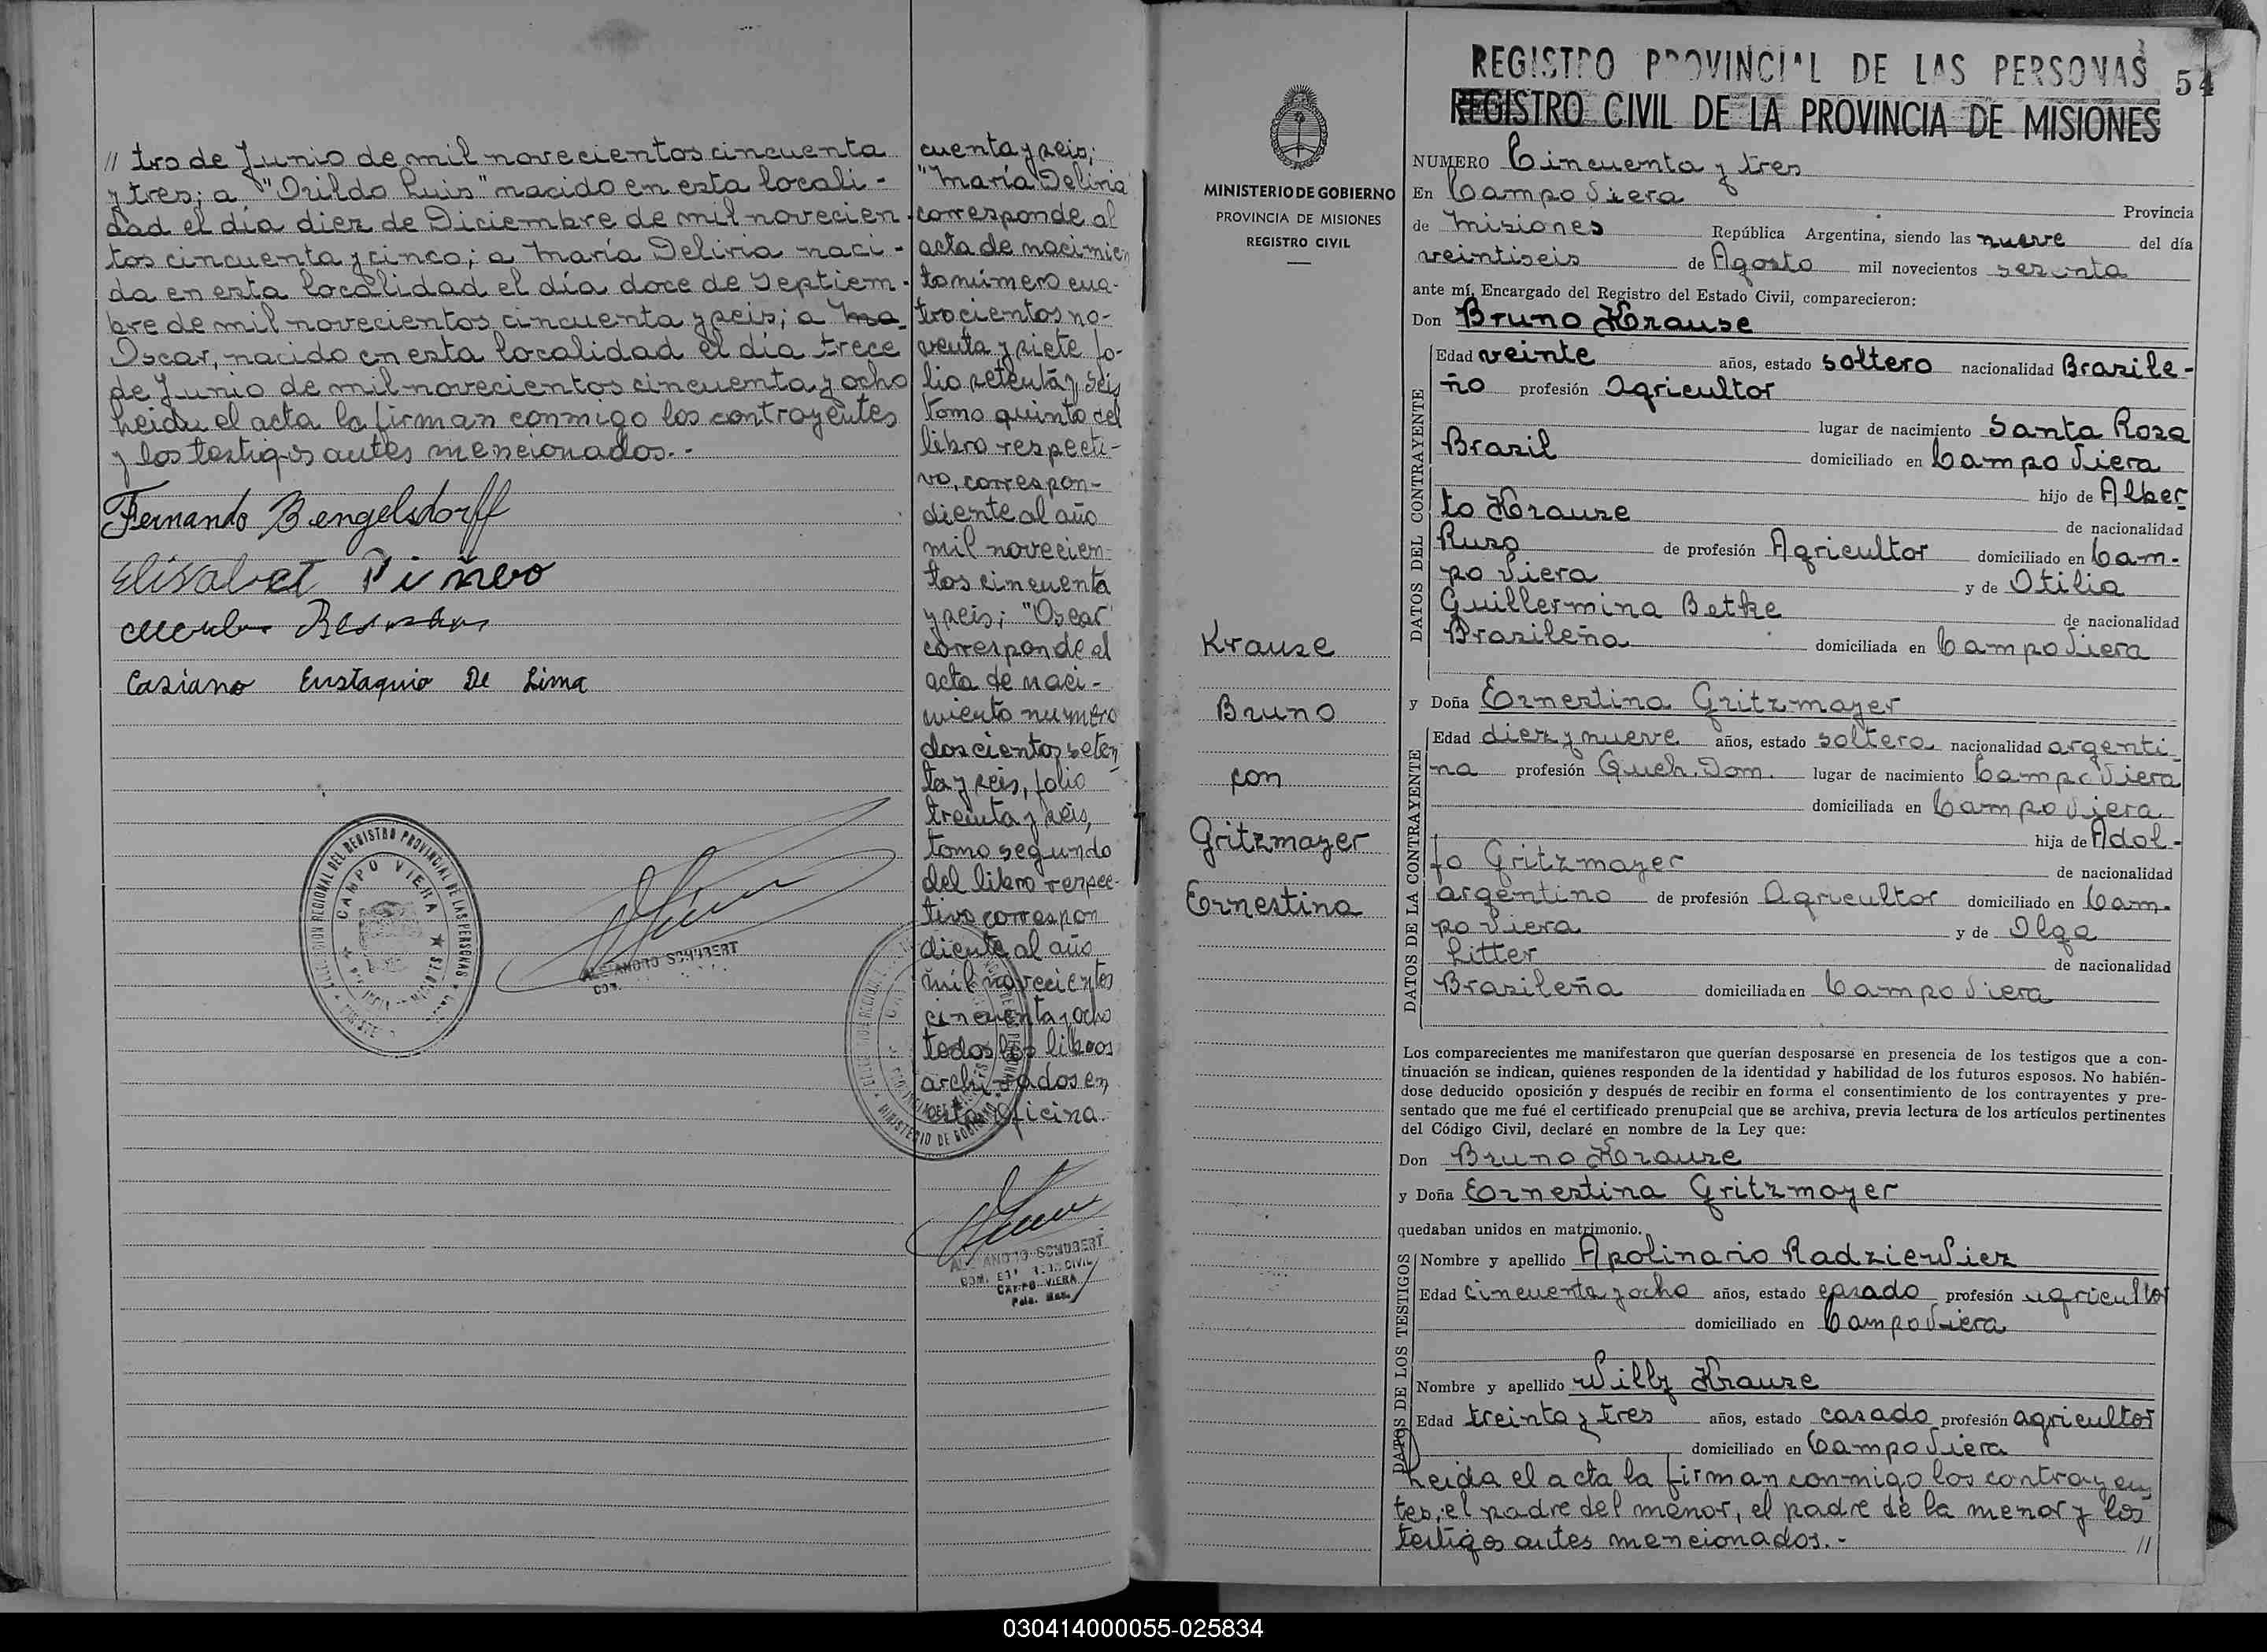 // tro de Junio de mil novecientos cincuenta
y tres; a "Orildo Luis" nacido en esta locali-
dad el día diez de Diciembre de mil novecien-
tos cincuenta y cinco; a María Deliria naci-
da en esta localidad el día doce de Septiem-
bre de mil novecientos cincuenta y seis; a
Oscar, nacido en esta localidad el día trece
de Junio de mil novecientos cincuenta y ocho
Leidu el acta la firman conmigo los contrayentes
y los testigos antes mencionados.-
Fernando Bengelsdorff
Elisabet Piñero
Casiano Eustaquio De Lima
CAMPO VIERA
ALEJANDRO SCHUBERT
cuenta y seis;
"María Deliria
corresponde al
acta de nacimien
to número cua-
trocientos no-
venta y siete fo-
lio setenta y seis
tomo quinto del
libro respecti-
vo, correspon-
diente al año
mil novecien-
tos cincuenta
y seis; "Oscar"
corresponde el
acta de naci-
miento numero
doscientos seten
ta y seis, folio
treinta y seis,
tomo segundo
del libro respec-
tivo correspon
diente al año
mil novecientos
cincuenta y ocho
todos los libros
archivados en
esta Oficina.
ALEJANDRO SCHUBERT
CAMPO VIERA
REGISTRO PROVINCIAL DE LAS PERSONAS 54
REGISTRO CIVIL DE LA PROVINCIA DE MISIONES
MINISTERIO DE GOBIERNO
PROVINCIA DE MISIONES
REGISTRO CIVIL
Krause
Bruno
con
Gritzmayer
Ernestina
NUMERO Cincuenta y tres
En Campo Viera Provincia
de Misiones República Argentina, siendo las nueve del día
veintiseis de Agosto mil novecientos sesenta
ante mí, Encargado del Registro del Estado Civil, comparecieron:
Don Bruno Krause
DATOS DEL CONTRAYENTE
Edad veinte años, estado soltero nacionalidad Brasile-
ño profesión Agricultor
lugar de nacimiento Santa Rosa
Brasil domiciliado en Campo Viera
hijo de Alber-
to Krause de nacionalidad
Ruso de profesión Agricultor domiciliado en Cam-
po Viera y de Otilia
Guillermina Betke de nacionalidad
Brasileña domiciliada en Campo Viera
y Doña Ernestina Gritzmayer
DATOS DE LA CONTRAYENTE
Edad diez y nueve años, estado soltera nacionalidad argenti-
na profesión Queh. Dom. lugar de nacimiento Campo Viera
domiciliada en Campo Viera
hija de Adol-
fo Gritzmayer de nacionalidad
argentino de profesión Agricultor domiciliado en Cam-
po Viera y de Olga
Litter de nacionalidad
Brasileña domiciliada en Campo Viera
Los comparecientes me manifestaron que querían desposarse en presencia de los testigos que a con-
tinuación se indican, quienes responden de la identidad y habilidad de los futuros esposos. No habién-
dose deducido oposición y después de recibir en forma el consentimiento de los contrayentes y pre-
sentado que me fué el certificado prenupcial que se archiva, previa lectura de los artículos pertinentes
del Código Civil, declaré en nombre de la Ley que:
Don Bruno Krause
y Doña Ernestina Gritzmayer
quedaban unidos en matrimonio.
DATOS DE LOS TESTIGOS
Nombre y apellido Apolinario Radzieviez
Edad cincuenta y ocho años, estado casado profesión agricultor
domiciliado en Campo Viera
Nombre y apellido Willy Krause
Edad treinta y tres años, estado casado profesión agricultor
domiciliado en Campo Viera
Leida el acta la firman conmigo los contrayen
tes, el padre del menor, el padre de la menor y los
testigos antes mencionados.- //
030414000055-025834